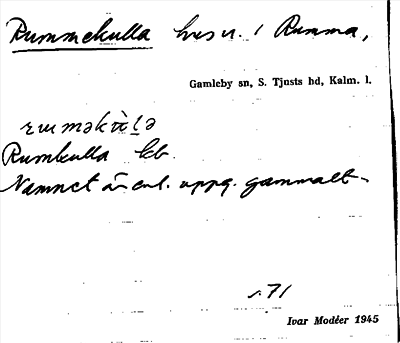 Rummekulla hvsn. i Rumma,
Gamleby sn, S. Tjusts hd, Kalm. l.
Rumkulla kb.
Namnet är enl. uppg. gammalt.
s. 71
Ivar Modéer 1945